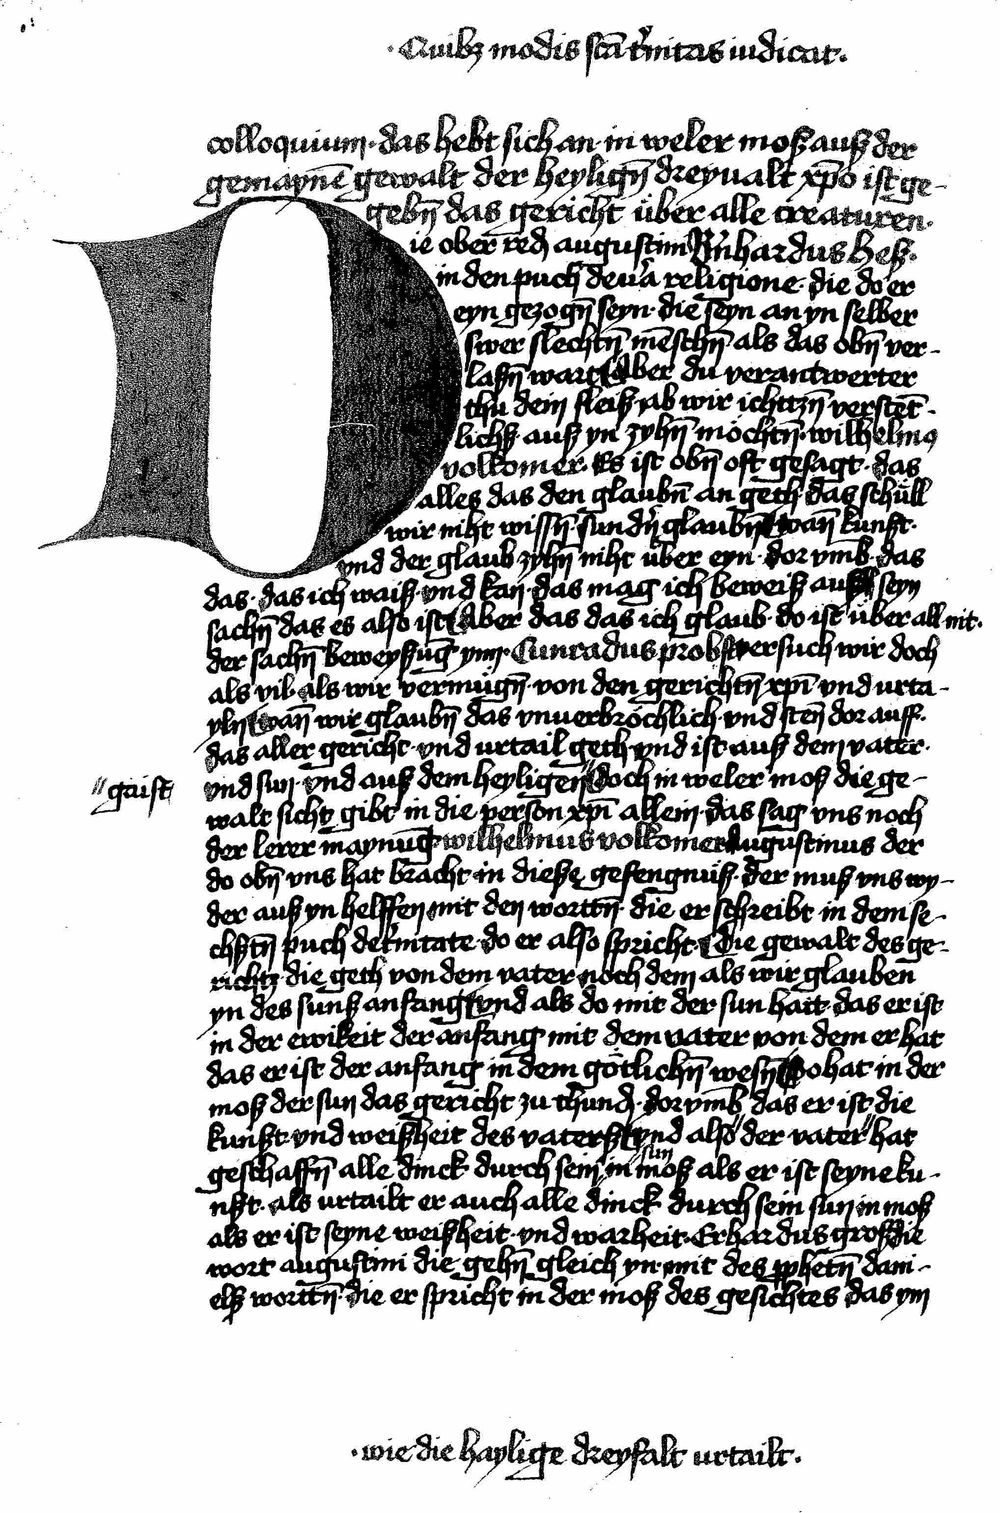 ·Quibꝫ modis scā tⁱnitas iudicat·
colloquium· das hebt sich an· in weler moß auß der
gemaynē gewalt der heyligñ dreyualt xp̄o ist ge-
gebñ das gericht über alle creaturen·
ie ober red augustini Bⁱnhardus heß·
in den puch de uⁱa religione· die do er
eyn gezogñ seyn· die seyn an yn selber
swer slechtñ mēschñ als das obñ ver-
laßñ wart Aber du verantwerter
thu dein fleiß ab wir ichttzñ verstēt-
lichß auß yn zyhñ möchtñ· wilhelmꝯ
volkomer· Es ist obñ oft gesagt· das
alles das den glaubñ an geth· das schüll
wir niht wissñ· sundⁱn glaubñ wañ kunst·
vnd der glaub zyhñ niht über eyn· dor vmb· das
das· das ich waiß· vnd kañ· das mag ich beweiß auß seyn
sachñ das es also ist Aber das das ich glaub· do ist über all nit·
der sachñ beweysūg ynn· Cunradus probst versuch wir doch
als vil· als wir vermügñ· von den gerichtñ xp̄i vnd urta-
yln wañ wir glaubñ das vnuerbröchlich vnd stēn dor auff·
das aller gericht· vnd urtail geth vnd ist auß dem vater·
"gaist
vnd sun· vnd auß dem heyligen" Doch in weler moß die ge-
walt sicht gibt in die person xp̄i allein· das sag vns noch
der lerer maynūg wilhelmus volkomer Augustinus der
do obñ vns hat bracht· in dieße gefengnüß· der muß vns wy-
der auß yn helffen mit den worttñ· die er schreibt in dem se-
chßtñ puch de tⁱnitate· do er also spricht· Die gewalt des ge-
richtz· die geth von dem vater noch dem als wir glauben
yn des sunß anfang vnd als do mit der sun hatt· das er ist
in der ewikeit der anfang mit dem vater von dem er hat
das er ist der anfang in dem götlichñ wesñ So hat in der
moß der sun das gericht zu thund· dor vmb das er ist die
kunßt· vnd weißheit des vaterß vnd also" der vater" hat
geschaffñ alle dinck durch sein in moß als er ist seyne ku-
sun
nßt· als urtailt er auch alle dinck durch sein sun in moß
als er ist seyne weißheit· vnd warheit· Erhardus groß die
wort augustini die gehñ gleich yn· mit des ꝓphetñ dani-
elß worttñ· die er spricht in der moß des gesichtes das ym
·wie die haylige dreyfalt urtailt·